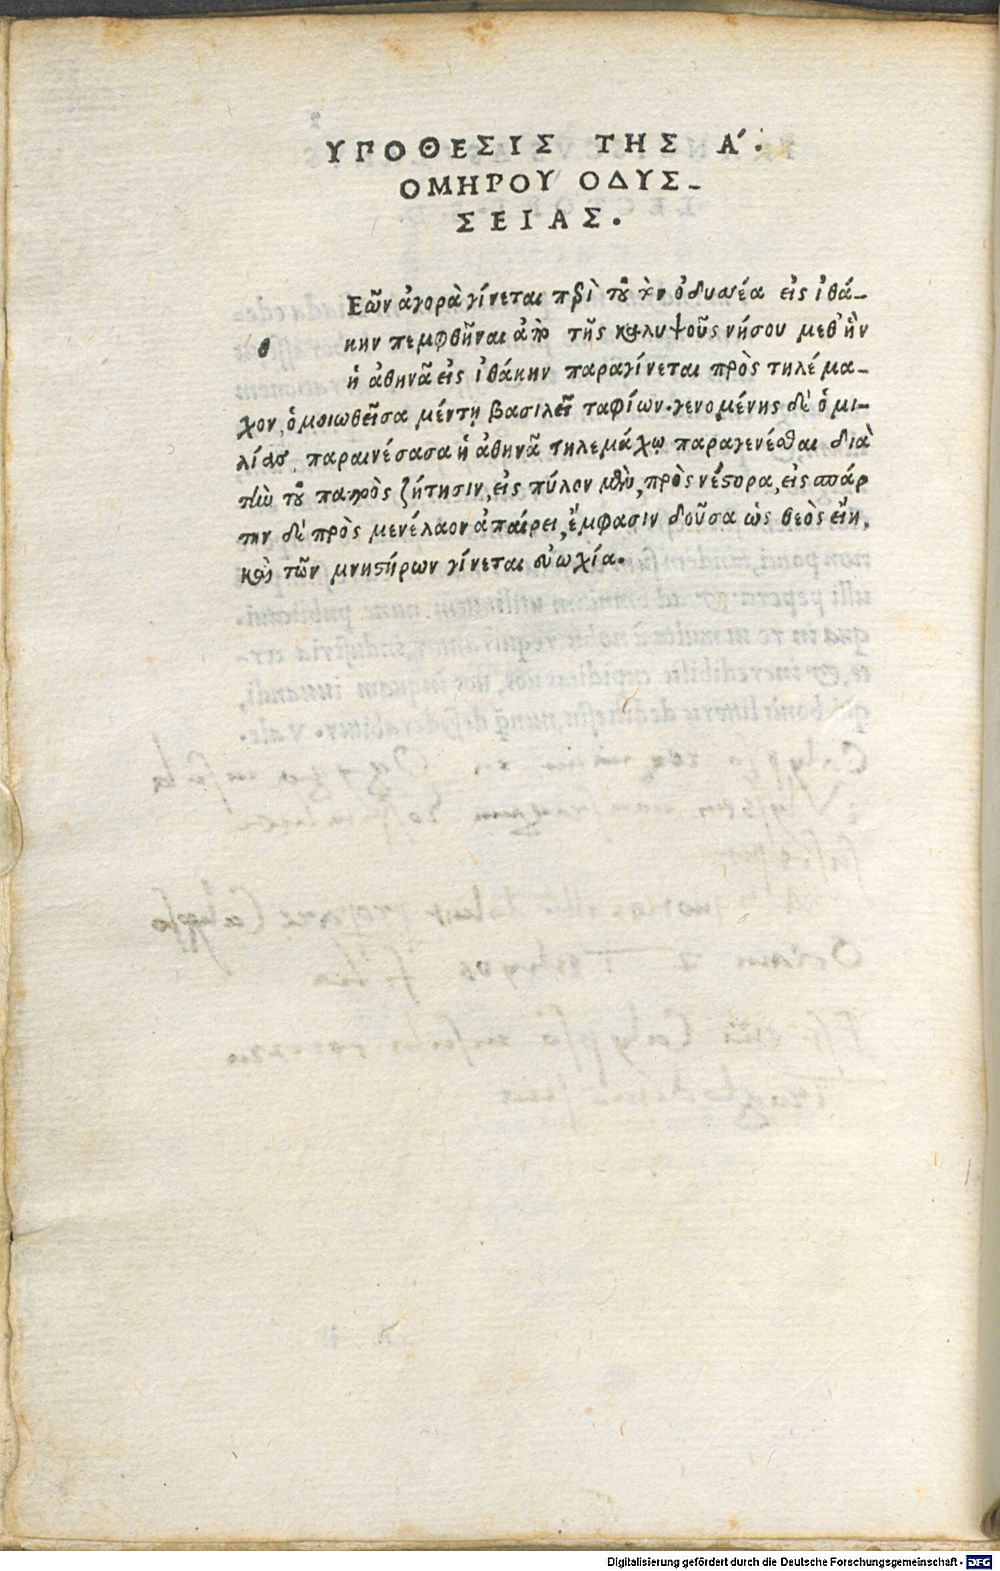 ΥΠΟΘΕΣΙΣ ΤΗΣ Α΄.
ΟΜΗΡΟΥ ΟΔΥΣ-
ΣΕΙΑΣ.
θ
Εῶν ἀγορὰ γίνεται περὶ τοῦ τὸν ὀδυσσέα εἰς ἰθά-
κην πεμφθῆναι ἀπὸ τῆς καλυψοῦς νήσου μεθ᾽ ἣν
ἡ ἀθηνᾶ εἰς ἰθάκην παραγίνεται πρὸς τηλέμα-
χον, ὁμοιωθεῖσα μέντῃ βασιλεῖ ταφίων. γενομένης δὲ ὁμι-
λίας, παραινέσασα ἡ ἀθηνᾶ τηλεμάχῳ παραγενέσθαι διὰ
τὴν τοῦ πατρὸς ζήτησιν, εἰς πύλον μὲν, πρὸς νέστορα, εἰς σπάρ
την δὲ πρὸς μενέλαον ἀπαίρει, ἔμφασιν δοῦσα ὡς θεὸς εἴη,
καὶ τῶν μνηστήρων γίνεται εὐωχία.
Digitalisierung gefördert durch die Deutsche Forschungsgemeinschaft - DFG